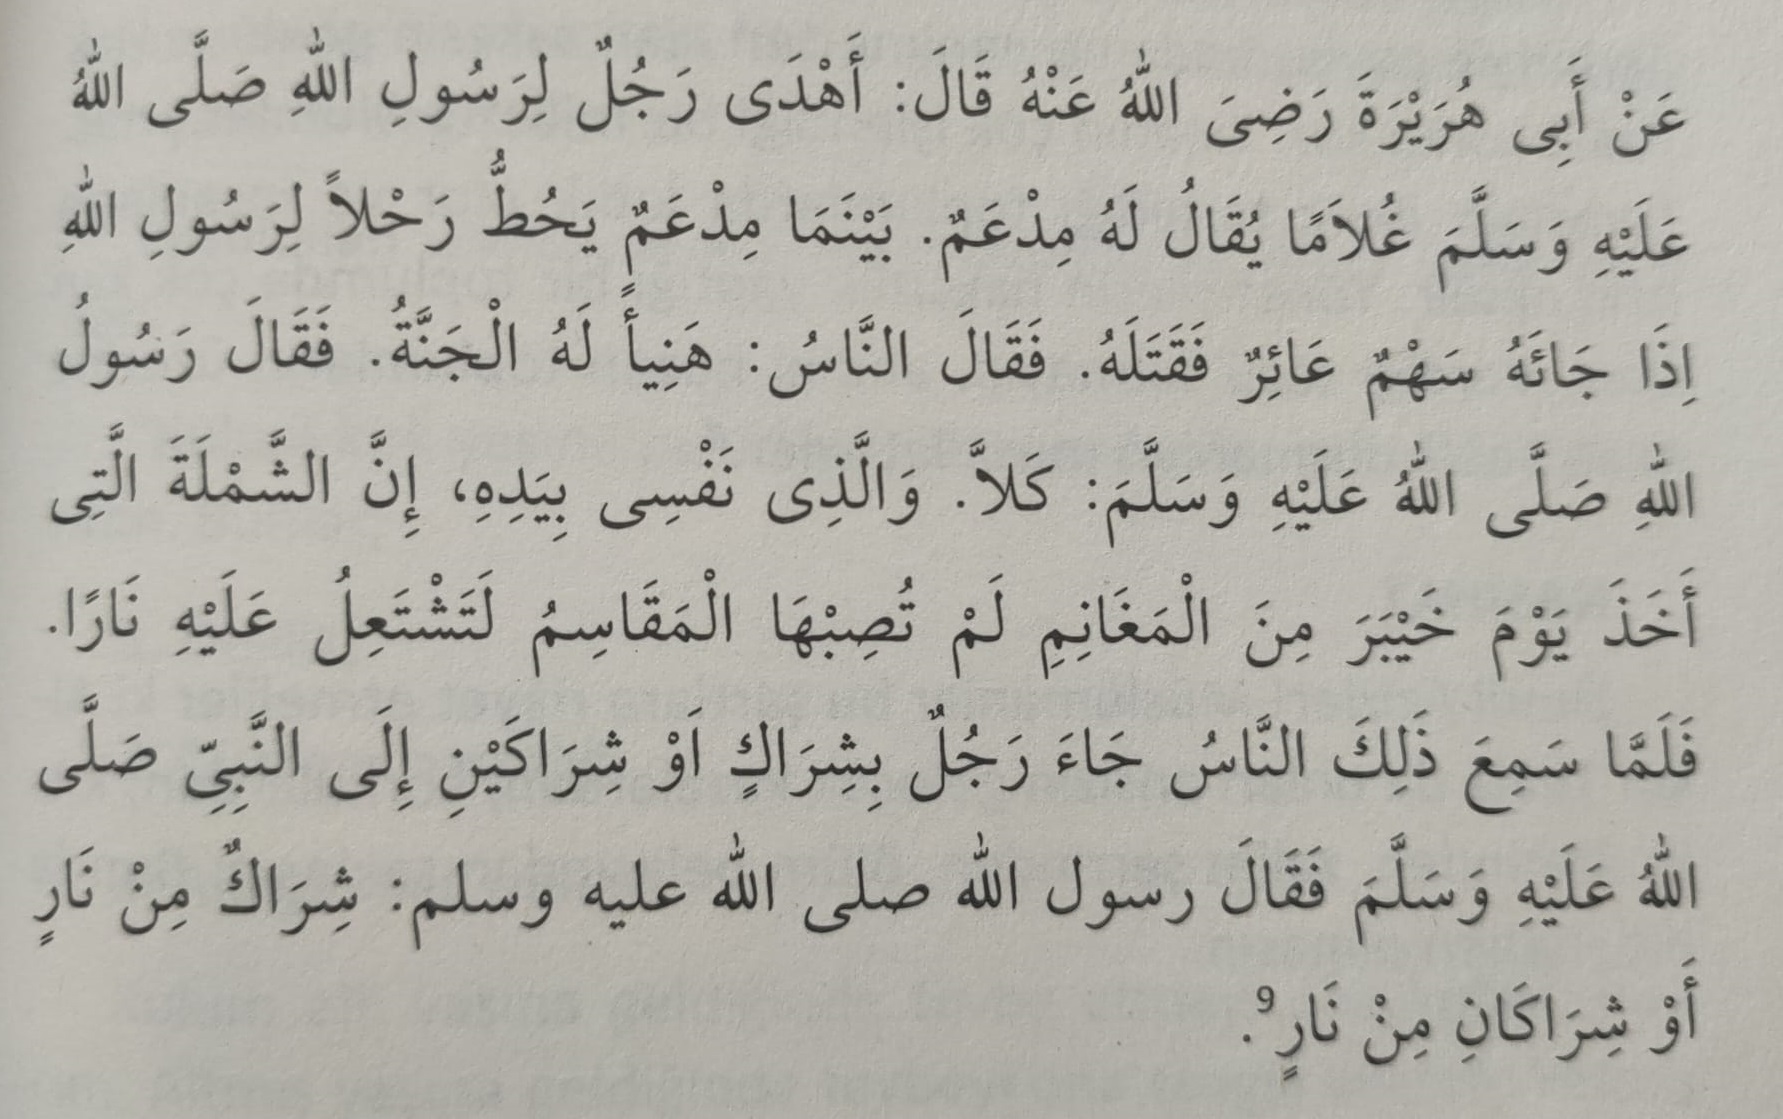 عَنْ أَبِى هُرَيْرَةَ رَضِىَ اللّٰهُ عَنْهُ قَالَ: أَهْدَى رَجُلٌ لِرَسُولِ اللّٰهِ صَلَّى اللّٰهُ
عَلَيْهِ وَسَلَّمَ غُلاَمًا يُقَالُ لَهُ مِدْعَمٌ. بَيْنَمَا مِدْعَمٌ يَحُطُّ رَحْلاً لِرَسُولِ اللّٰهِ
اِذَا جَائَهُ سَهْمٌ عَائِرٌ فَقَتَلَهُ. فَقَالَ النَّاسُ: هَنِيأً لَهُ الْجَنَّةُ. فَقَالَ رَسُولُ
اللّٰهِ صَلَّى اللّٰهُ عَلَيْهِ وَسَلَّمَ: كَلاَّ. وَالَّذِى نَفْسِى بِيَدِهِ، إِنَّ الشَّمْلَةَ الَّتِى
أَخَذَ يَوْمَ خَيْبَرَ مِنَ الْمَغَانِمِ لَمْ تُصِبْهَا الْمَقَاسِمُ لَتَشْتَعِلُ عَلَيْهِ نَارًا.
فَلَمَّا سَمِعَ ذَلِكَ النَّاسُ جَاءَ رَجُلٌ بِشِرَاكٍ اَوْ شِرَاكَيْنِ إِلَى النَّبِيِّ صَلَّى
اللّٰهُ عَلَيْهِ وَسَلَّمَ فَقَالَ رسول اللّٰه صلى اللّٰه عليه وسلم: شِرَاكٌ مِنْ نَارٍ
أَوْ شِرَاكَانِ مِنْ نَارٍ⁹.